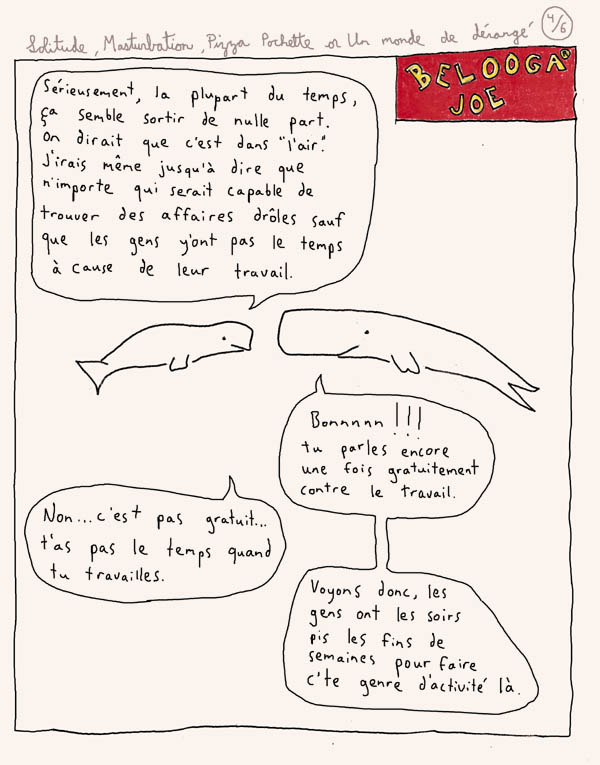 Solitude, Masturbation, Pizza Pochette or Un monde de dérangé
4/6
BELOOGA®
JOE
Sérieusement, la plupart du temps,
ça semble sortir de nulle part.
On dirait que c'est dans "l'air".
J'irais même jusqu'à dire que
n'importe qui serait capable de
trouver des affaires drôles sauf
que les gens y'ont pas le temps
à cause de leur travail.
Bonnnnn!!!
tu parles encore
une fois gratuitement
contre le travail.
Non...c'est pas gratuit...
t'as pas le temps quand
tu travailles.
Voyons donc, les
gens ont les soirs
pis les fins de
semaines pour faire
c'te genre d'activité là.